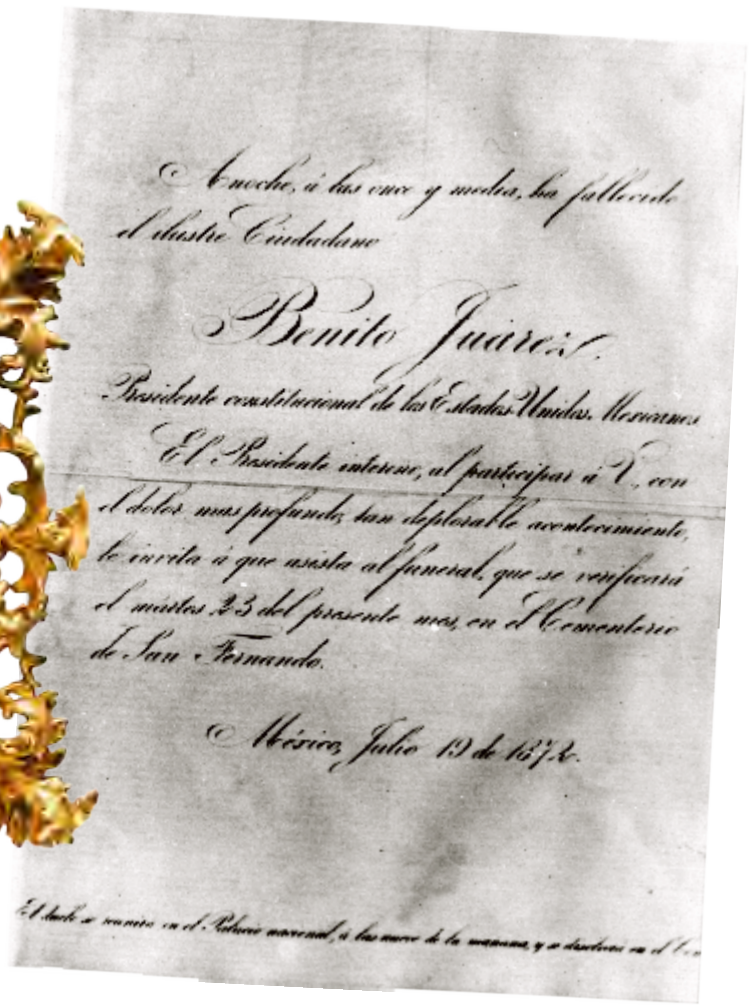 Anoche, á las once y media, ha fallecido
el ilustre Ciudadano
Benito Juárez,
Presidente constitucional de los Estados Unidos Mexicanos
El Presidente interino, al participar á V., con
el dolor mas profundo, tan deplorable acontecimiento,
le invita á que asista al funeral, que se verificará
el mártes 23 del presente mes, en el Cementerio
de San Fernando.
México, Julio 19 de 1872.
El duelo se reunirá en el Palacio nacional, á las nueve de la mañana, y se disolverá en el